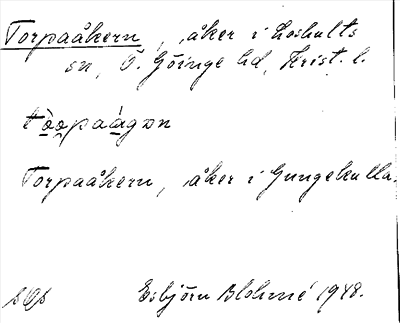 Torpaåkern, åker i Loshults
sn, Ö. Göinge hd, Krist. l.
tòopaágən
Torpaåkern, åker i Gungekulla.
Esbjörn Blohmé 1948.